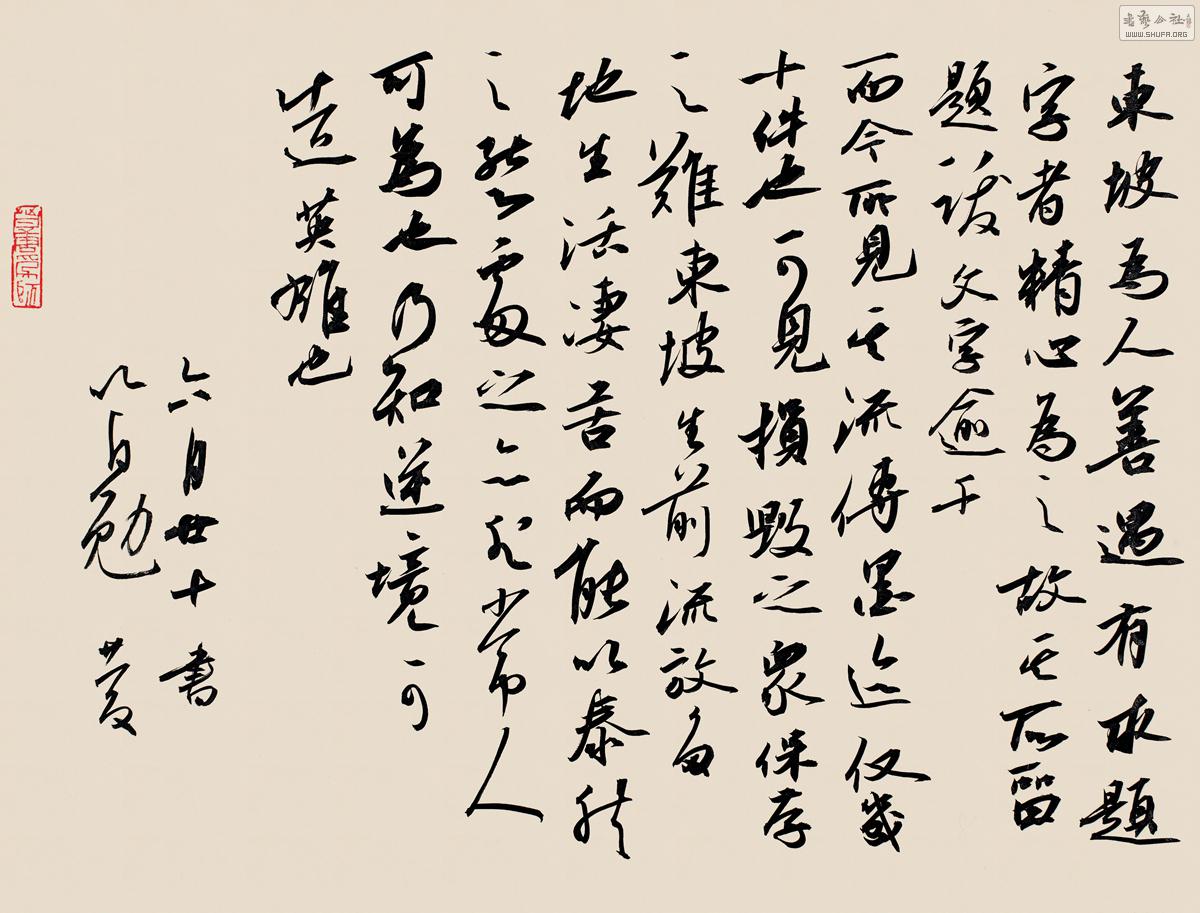 東坡為人善遇有求題
字者精心為之故其所留
題跋文字逾千
而今所見其流傳墨迹仅幾
十件也可見損毀之眾保存
之難東坡生前流放多
地生活凄苦而能以泰然
之態處之亦非常人
可為也乃知逆境可
造英雄也
六月廿十書
以自勉
书艺公社
WWW.SHUFA.ORG